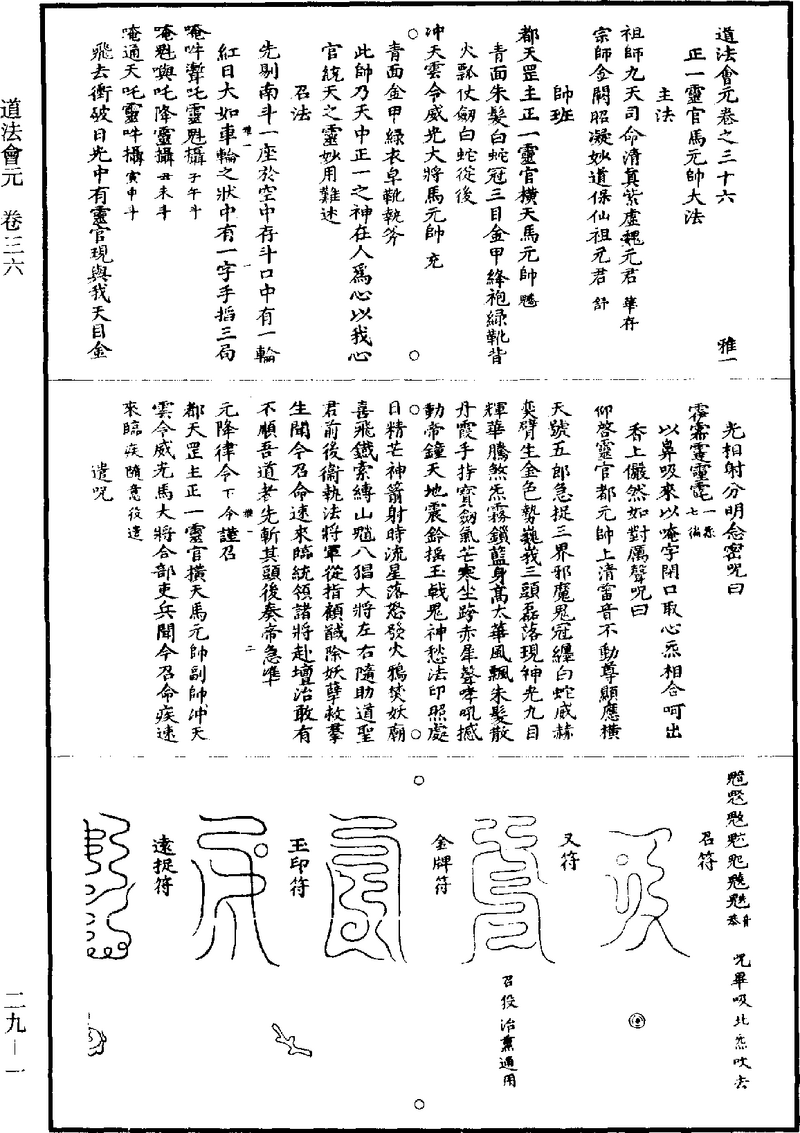 道法會元卷之三十六 雅一
正一靈官馬元帥大法
主法
祖師九天司命清真紫虛魏元君 華存
宗師金闕昭凝妙道保仙祖元君 舒
帥班
都天罡主正一靈官橫天馬元帥 勝
青面朱髮白蛇冠三目金甲絳袍綠靴背
火瓢仗劔白蛇從後
冲天雲令威光大將馬元帥 充
青面金甲綠衣皁靴執斧
此帥乃天中正一之神在人爲心以我心
官統天之靈妙用難述
召法
先剔南斗一座於空中存斗口中有一輪
紅日大如車輪之狀中有一字手掐三局
唵吽 吒靈魁攝 子午斗
唵魁 吒降靈攝 丑未斗
唵通天吒靈吽攝 寅申斗
飛去衝破日光中有靈官現與我天目金
光相射分明念密呪曰
一 七徧
以鼻吸來以唵字閉口取心炁相合呵出
香上儼然如對厲聲呪曰
仰啓靈官都元帥上清雷音不動尊顯應橫
天號五郎急捉三界邪魔鬼冠纏白蛇威赫
奕臂生金色勢巍峩三頭磊落現神光九目
輝華騰煞炁霧鎖藍身高太華風飄朱髮散
丹霞手指寶劔氣芒寒坐跨赤犀聲哮吼撼
動帝鐘天地震鈴搖玉戟鬼神愁法印照處
日精芒神箭射時流星落怒發火鴉焚妖廟
喜飛鐵索縛山魈八猖大將左右隨助道聖
君前後衞執法將軍從指顧馘除妖孽救羣
生聞今召命速來臨統領諸將赴壇治敢有
不順吾道者先斬其頭後奏帝急準
元降律令 下 今謹召
都天罡主正一靈官橫天馬元帥副帥冲天
雲令威光馬大將合部吏兵聞今召命疾速
來臨疾 隨意役遣
遣呪
呪畢吸北炁吹去
召符
又符
召役治業通用
金牌符
玉印符
遠捉符
道法會元 卷三六
二九－一